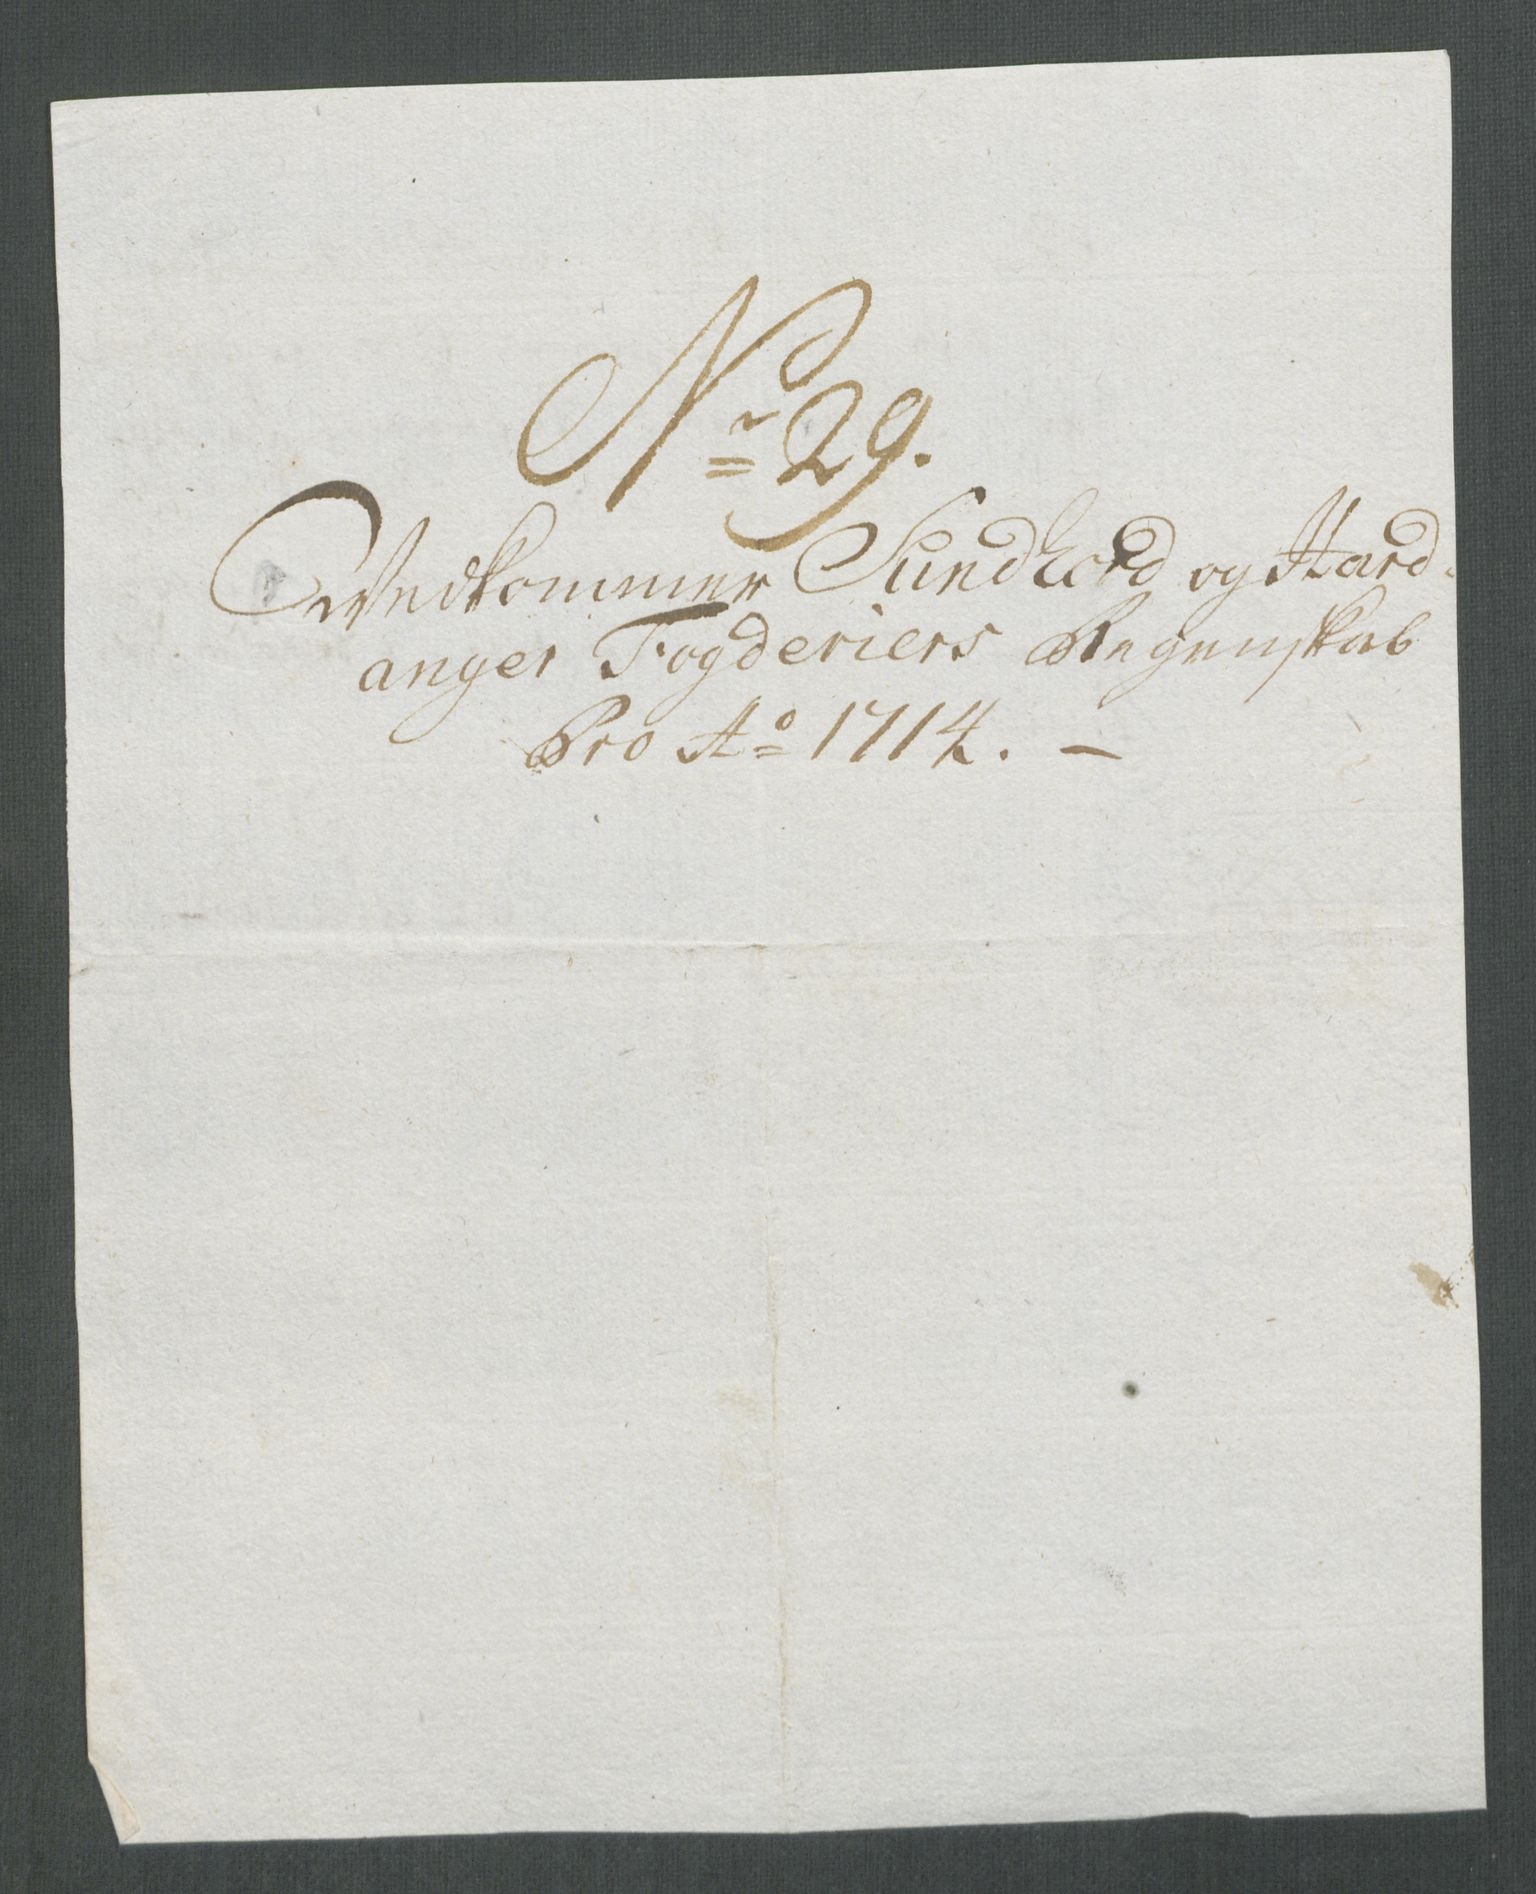 Nr 29.
Vedkommer Sundhord og Hard-
anger Fogderiers Regenskab
Pro Ao 1714. —